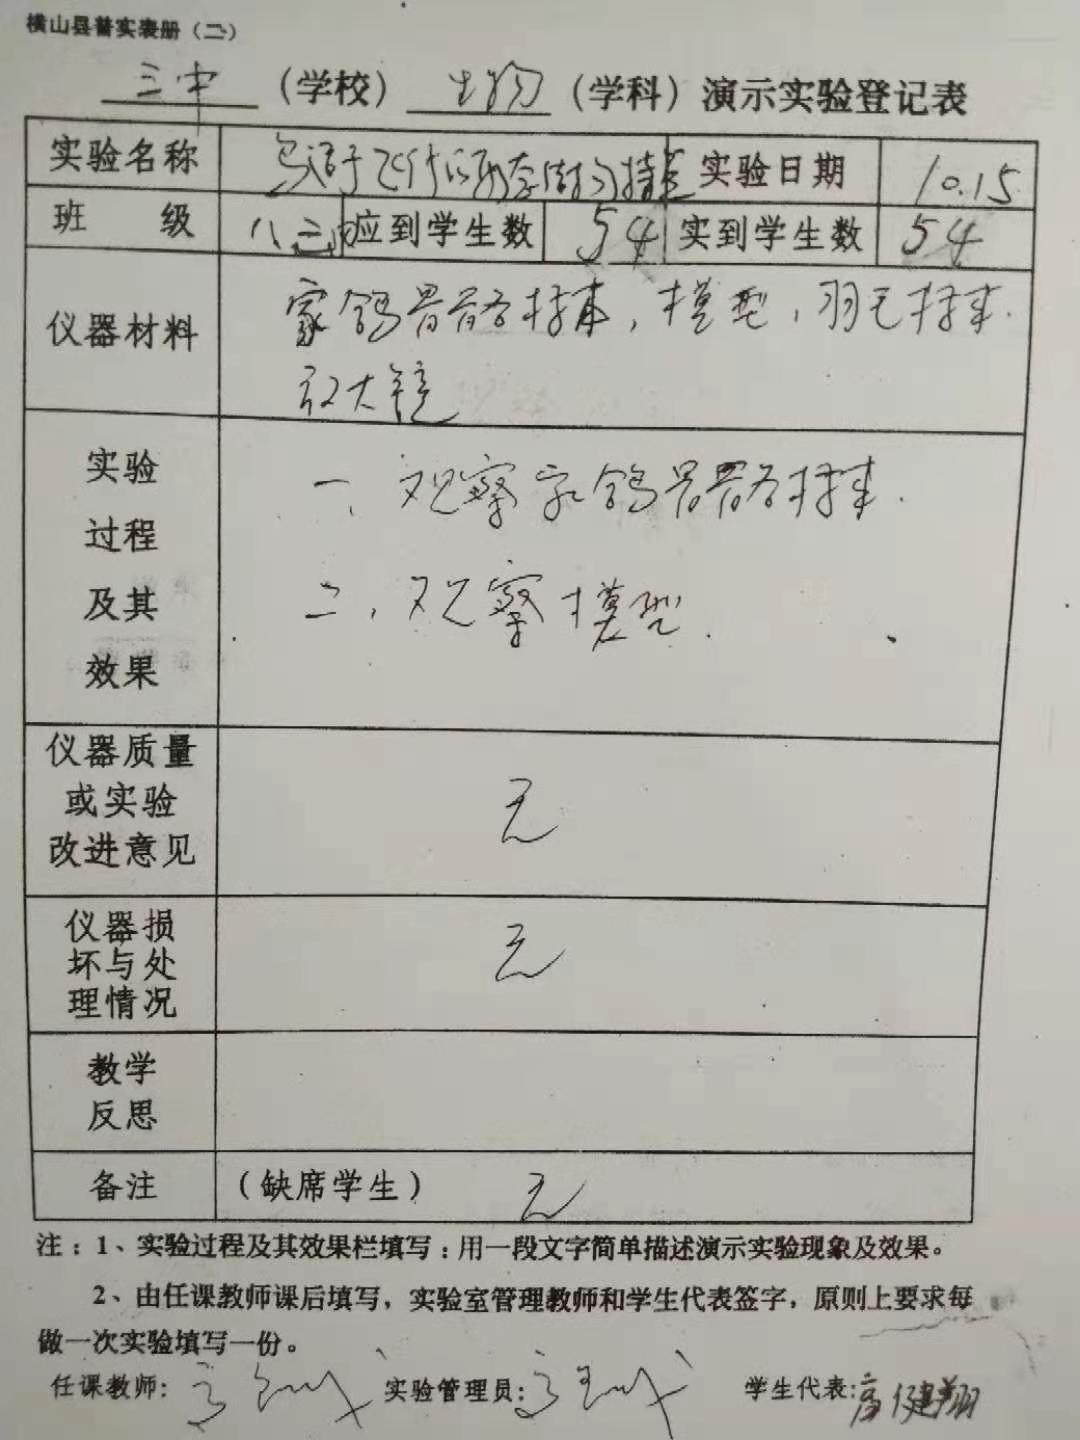 横山县普实表册（二）
三中（学校）生物（学科）演示实验登记表
实验名称 鸟适于飞行的形态结构特点 实验日期 10.15
班 级 八二 应到学生数 54 实到学生数 54
仪器材料 家鸽骨骼标本，模型，羽毛标本.
放大镜
实验
过程
及其
效果
一、观察家鸽骨骼标本.
二、观察模型.
仪器质量
或实验
改进意见
无
仪器损
坏与处
理情况
无
教学
反思
备注 （缺席学生） 无
注：1、实验过程及其效果栏填写：用一段文字简单描述演示实验现象及效果。
2、由任课教师课后填写，实验室管理教师和学生代表签字，原则上要求每
做一次实验填写一份。
任课教师： 实验管理员： 学生代表：高健翔